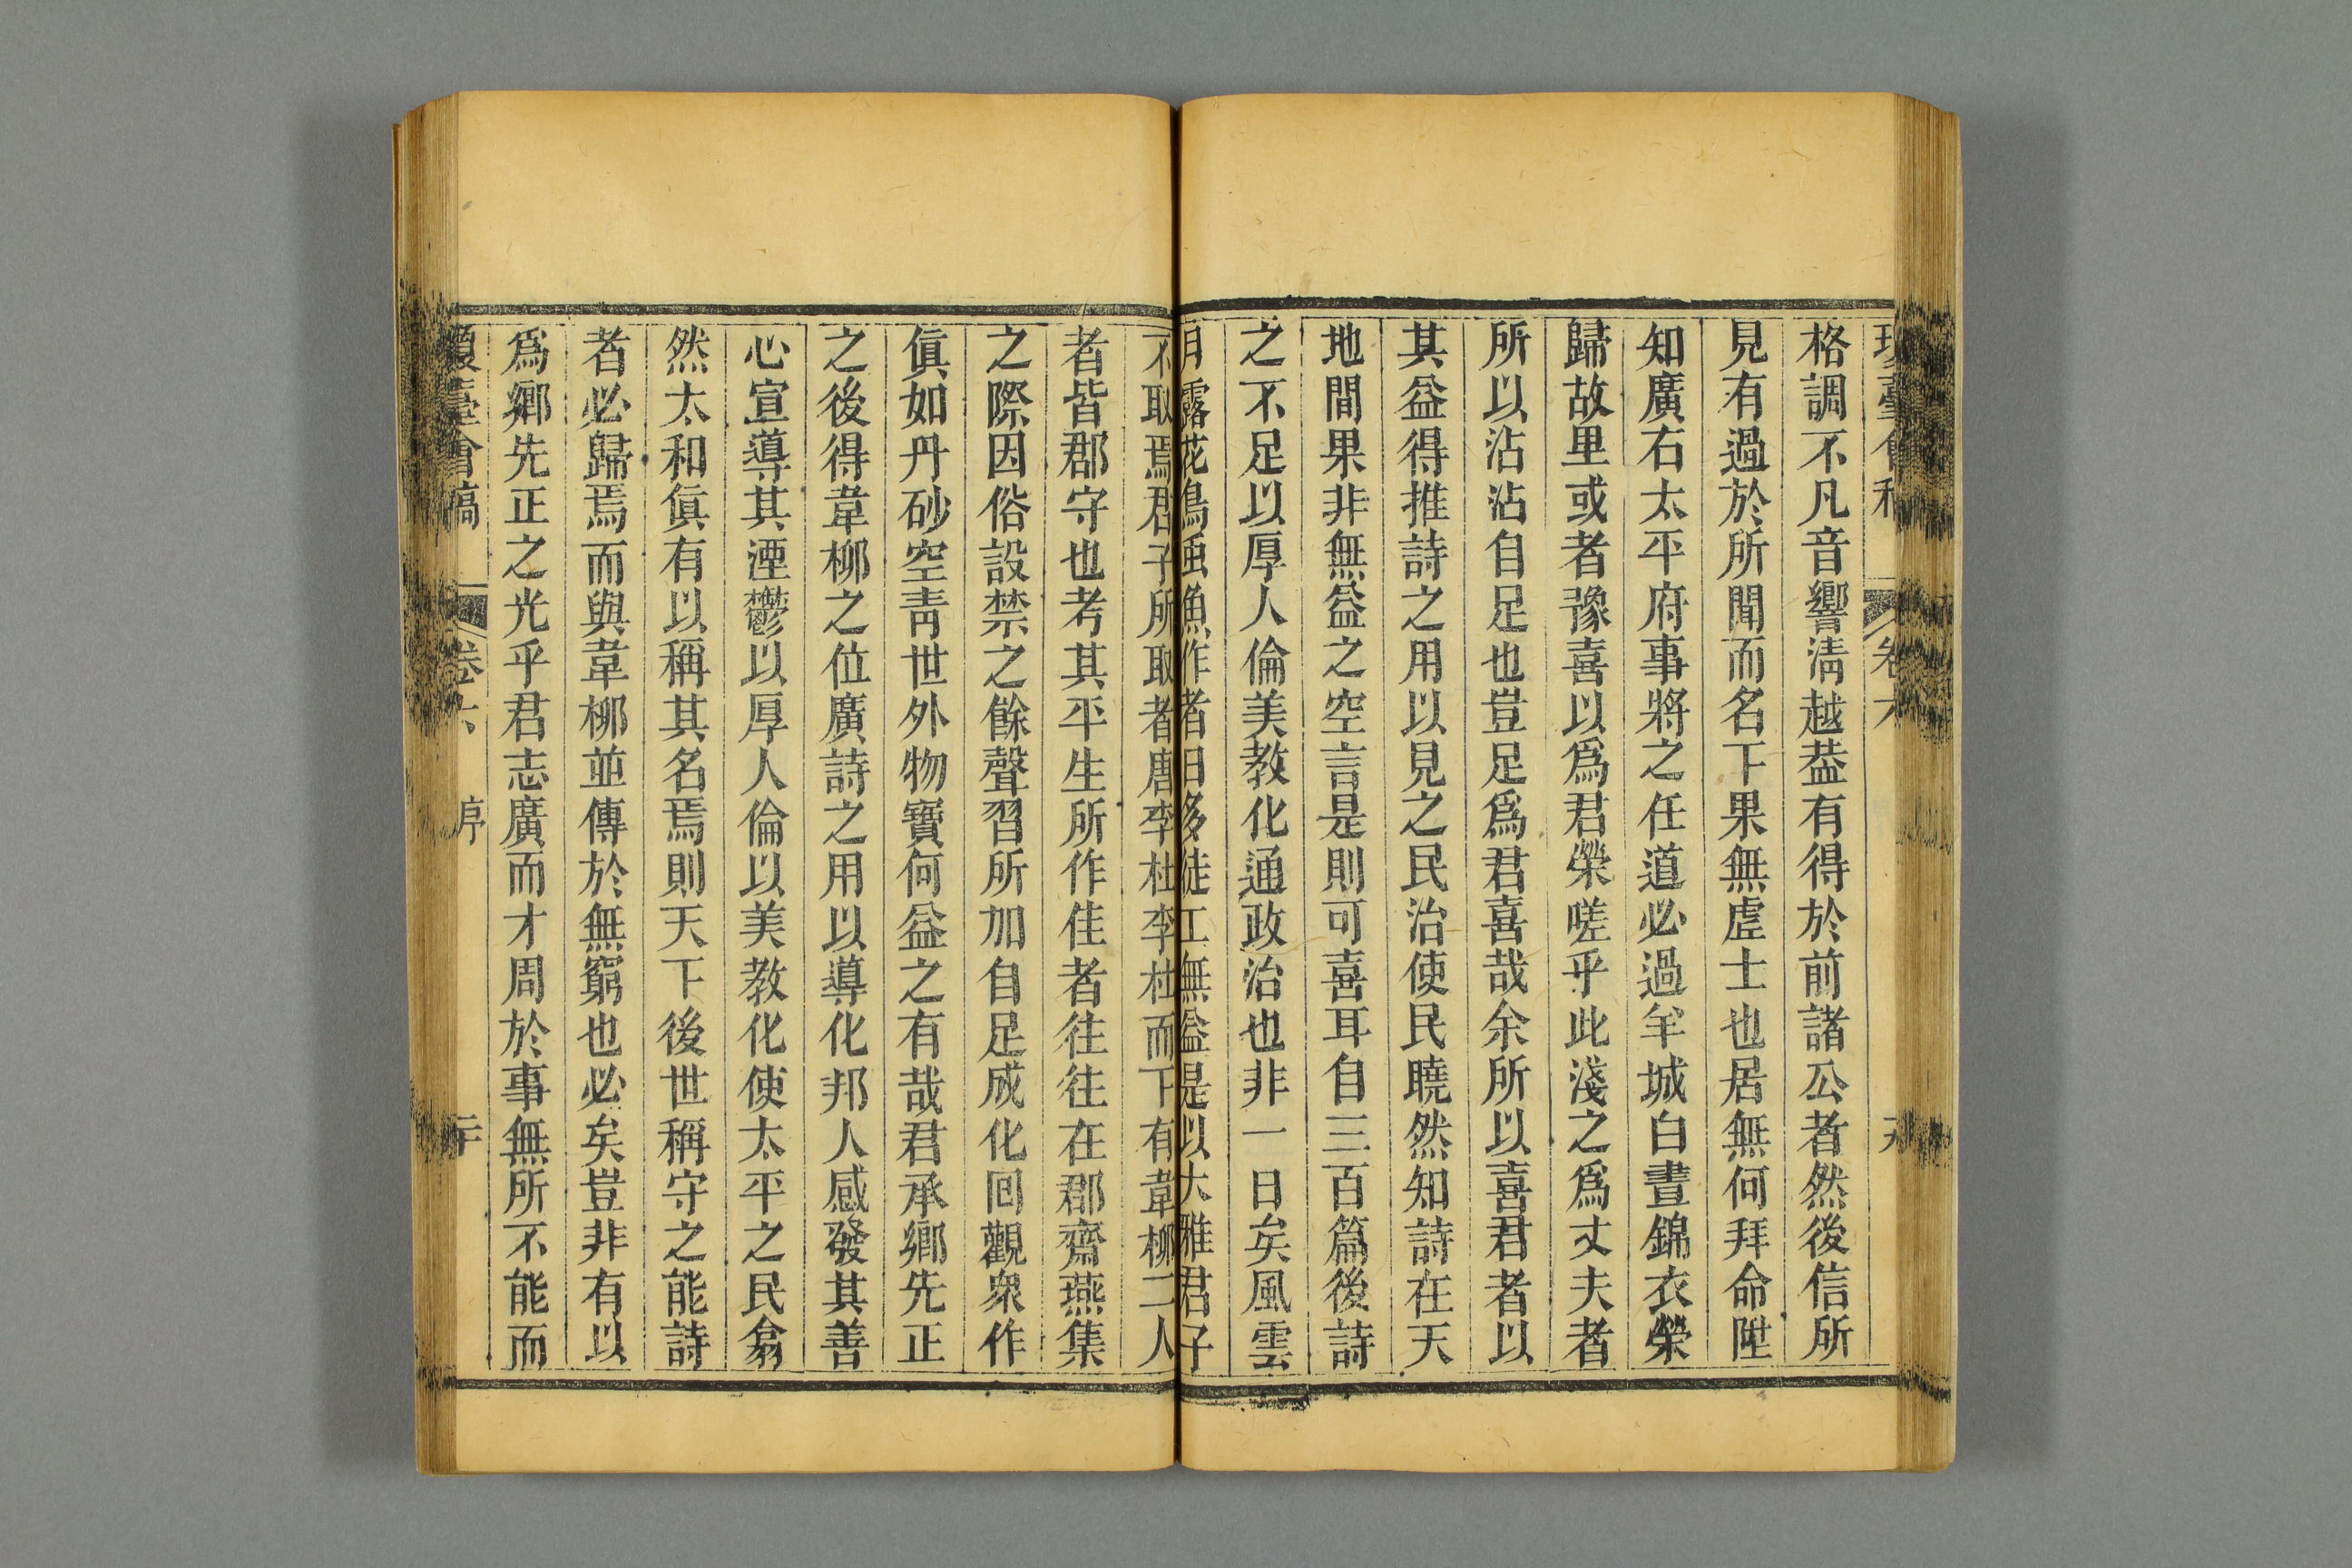 瓊臺會稿 卷六
格調不凡音響淸越葢有得於前諸公者然後信所
見有過於所聞而名下果無虛士也居無何拜命陞
知廣右太平府事將之任道必過羊城白晝錦衣榮
歸故里或者豫喜以爲君榮嗟乎此淺之爲丈夫者
所以沾沾自足也豈足爲君喜哉余所以喜君者以
其益得推詩之用以見之民治使民曉然知詩在天
地間果非無益之空言是則可喜耳自三百篇後詩
之不足以厚人倫美教化通政治也非一日矣風雲
月露花鳥虫魚作者日多徒工無益是以大雅君子
不取焉君子所取者唐李杜李杜而下有韋柳二人
者皆郡守也考其平生所作佳者往往在郡齋燕集
之際因俗設禁之餘聲習所加自足成化回觀衆作
眞如丹砂空靑世外物寶何益之有哉君承鄉先正
之後得韋柳之位廣詩之用以導化邦人感發其善
心宣導其湮鬱以厚人倫以美教化使太平之民翕
然太和眞有以稱其名焉則天下後世稱守之能詩
者必歸焉而與韋柳並傳於無窮也必矣豈非有以
爲鄉先正之光乎君志廣而才周於事無所不能而
瓊臺會稿 卷六 序 二十